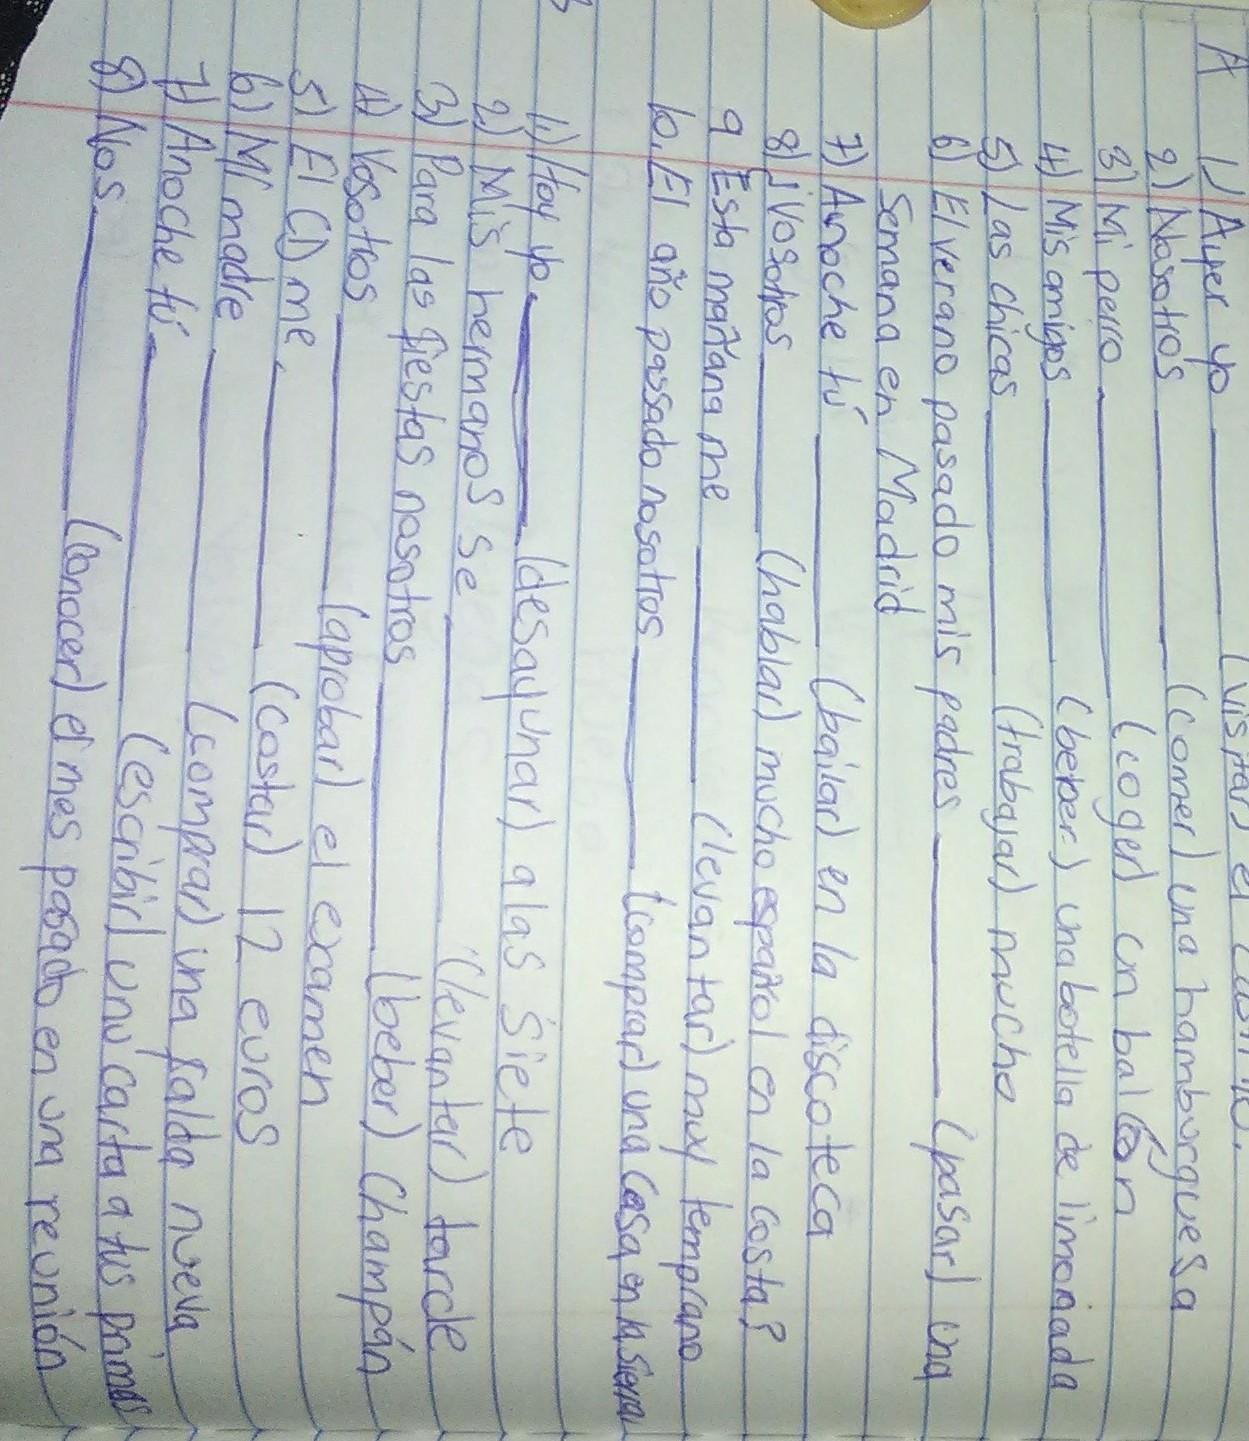 A 1.) Ayer yo ______ (visitar) el casino.
2.) Nosotros ______ (comer) una hamburguesa
3) Mi perro ______ (coger) un balón
4) Mis amigos ______ (beber) una botella de limonada
5) Las chicas ______ (trabajar) mucho
6) El verano pasado mis padres ______ (pasar) una
Semana en Madrid
7) Anoche tú ______ (bailar) en la discoteca
8) ¿Vosotros ______ (hablar) mucho español en la costa?
9 Esta mañana me ______ (levantar) muy temprano
10. El año passado nosotros ______ (comprar) una Casa en la Sierra
1.) Hoy yo ______ (desayunar) a las Siete
2.) Mis hermanos se ______ (levantar) tarde
3) Para las fiestas nosotros ______ (beber) Champán
4) Vosotros ______ (aprobar) el examen
5) El CD me ______ (costar) 12 euros
6) Mi madre ______ (comprar) una falda nueva
7) Anoche tú ______ (escribir) una carta a tus primas
8) Nos ______ (conocer) el mes pasado en una reunión